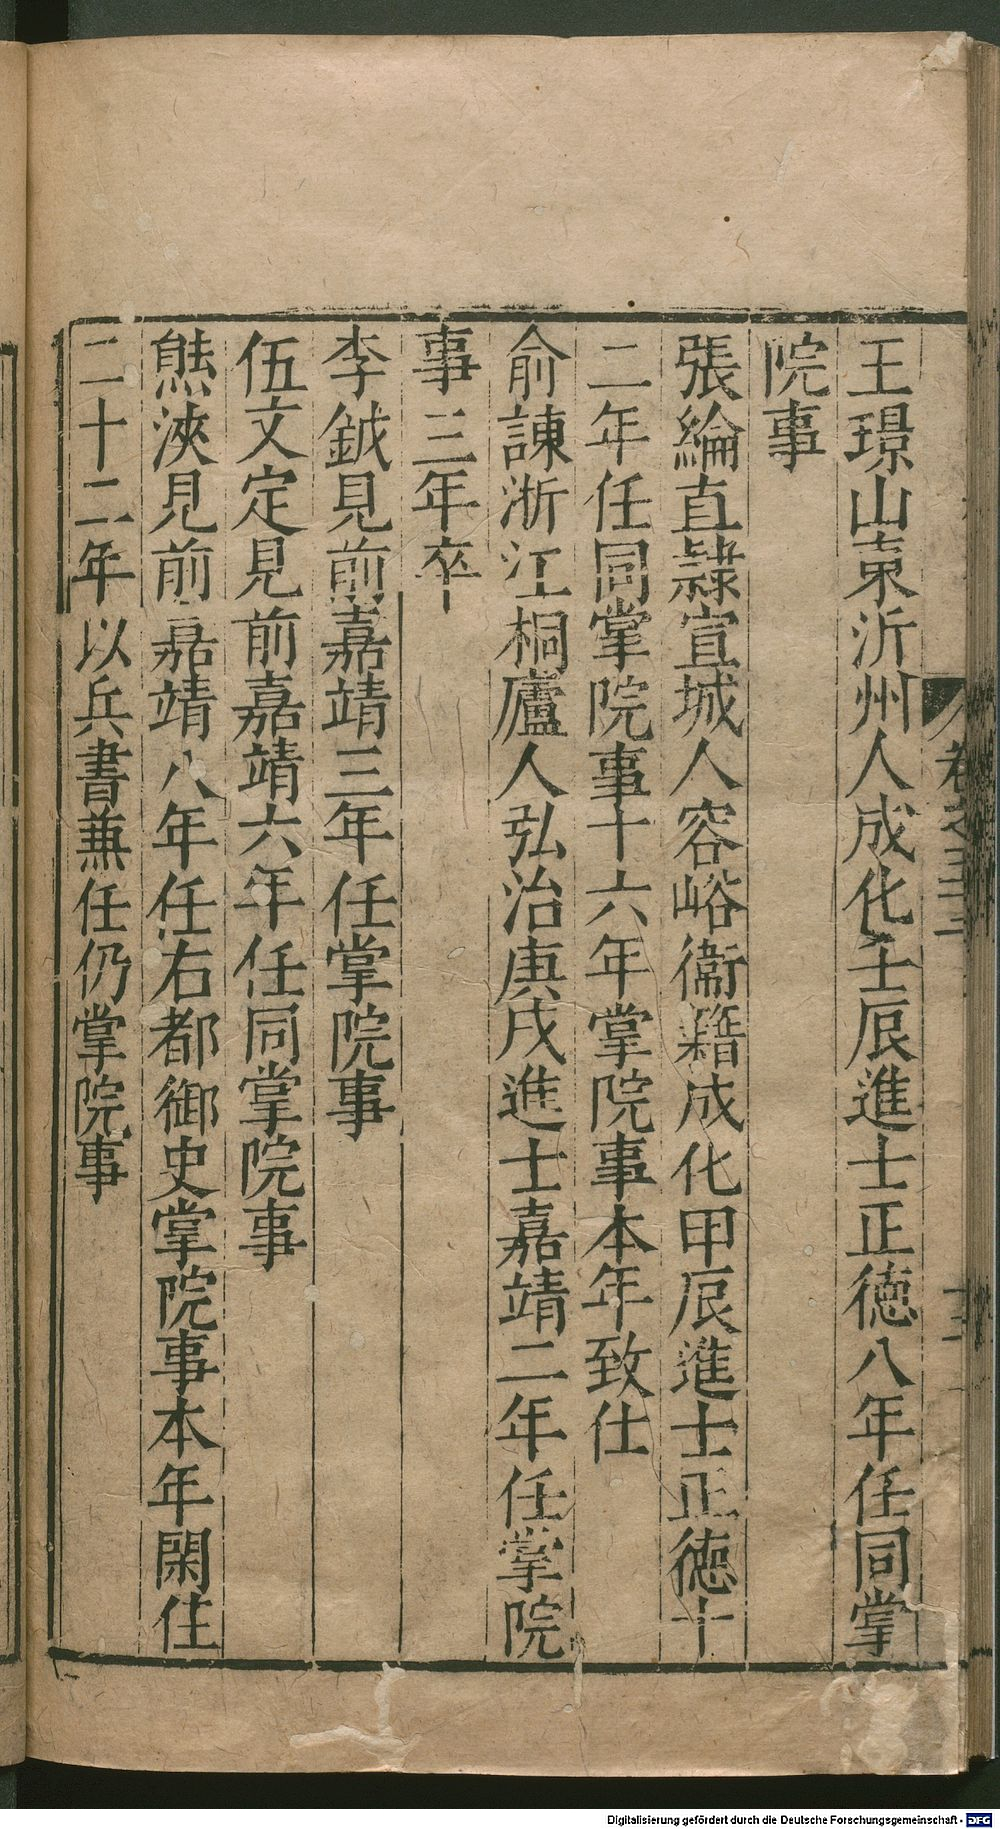 王璟山東沂州人成化壬辰進士正德八年任同掌
院事
張綸直隷宣城人容峪衞籍成化甲辰進士正德十
二年任同掌院事十六年掌院事本年致仕
俞諫浙江桐廬人弘治庚戌進士嘉靖二年任掌院
事三年卒
李鉞見前嘉靖三年任掌院事
伍文定見前嘉靖六年任同掌院事
熊浹見前嘉靖八年任右都御史掌院事本年閑住
二十二年以兵書兼任仍掌院事
Digitalisierung gefördert durch die Deutsche Forschungsgemeinschaft - DFG